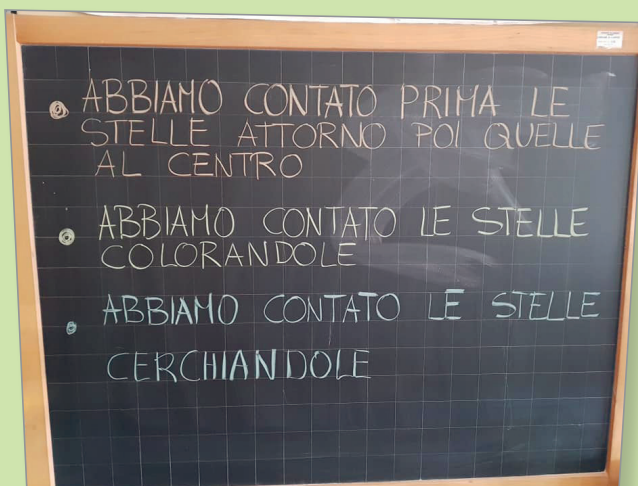 • ABBIAMO CONTATO PRIMA LE
STELLE ATTORNO POI QUELLE
AL CENTRO
• ABBIAMO CONTATO LE STELLE
COLORANDOLE
• ABBIAMO CONTATO LE STELLE
CERCHIANDOLE